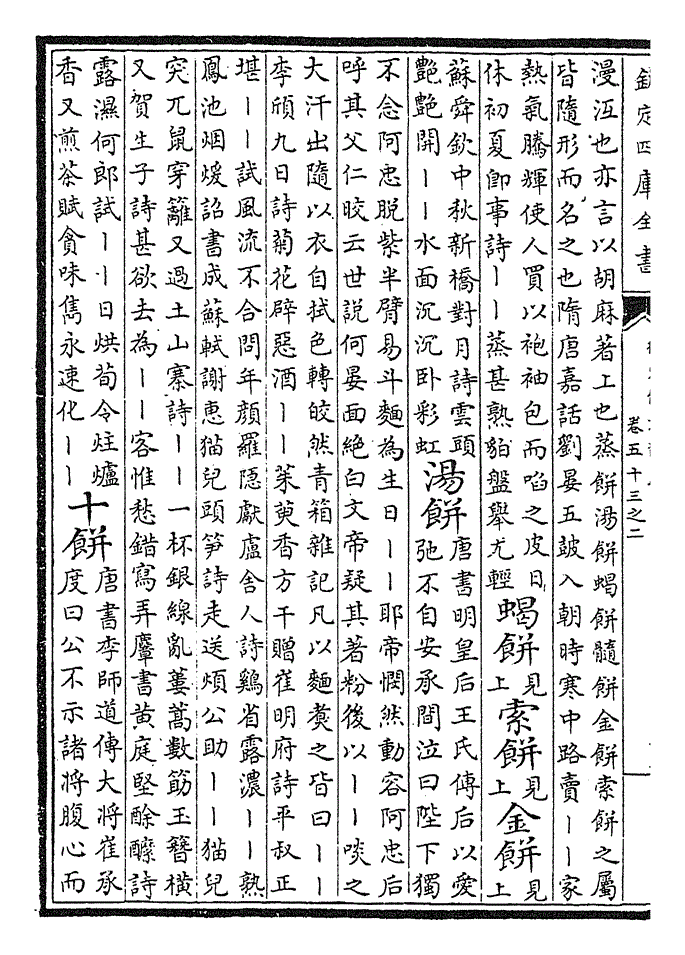 欽定四庫全書
卷五十三之二
漫沍也亦言以胡麻著上也蒸餅湯餅蝎餅髓餅金餅索餅之屬
皆隨形而名之也隋唐嘉話劉晏五鼓入朝時寒中路賣丨丨家
熱氣騰輝使人買以袍袖包而啗之皮日
休初夏即事詩丨丨蒸甚熟貊盤舉尤輕
蝎餅
見上
索餅
見上
金餅
見上
蘇舜欽中秋新橋對月詩雲頭
艷艷開丨丨水面沉沉卧彩虹
湯餅
唐書明皇后王氏傳后以愛
弛不自安承間泣曰陛下獨
不念阿忠脫紫半臂易斗麵為生日丨丨耶帝憫然動容阿忠后
呼其父仁皎云世説何晏面絶白文帝疑其著粉後以丨丨啖之
大汗出隨以衣自拭色轉皎然青箱雜記凡以麵煑之皆曰丨丨
李頎九日詩菊花辟惡酒丨丨茱萸香方干贈崔明府詩平叔正
堪丨丨試風流不合問年顔羅隱獻盧舍人詩鷄省露濃丨丨熟
鳳池烟煖詔書成蘇軾謝惠猫兒頭笋詩走送煩公助丨丨猫兒
突兀鼠穿籬又過土山寨詩丨丨一杯銀線亂蔞蒿數筯玉簪橫
又賀生子詩甚欲去為丨丨客惟愁錯寫弄麞書黄庭堅酴醿詩
露濕何郎試丨丨日烘荀令炷爐
香又煎茶賦貪味雋永速化丨丨
十餅
唐書李師道傳大將崔承
度曰公不示諸將腹心而